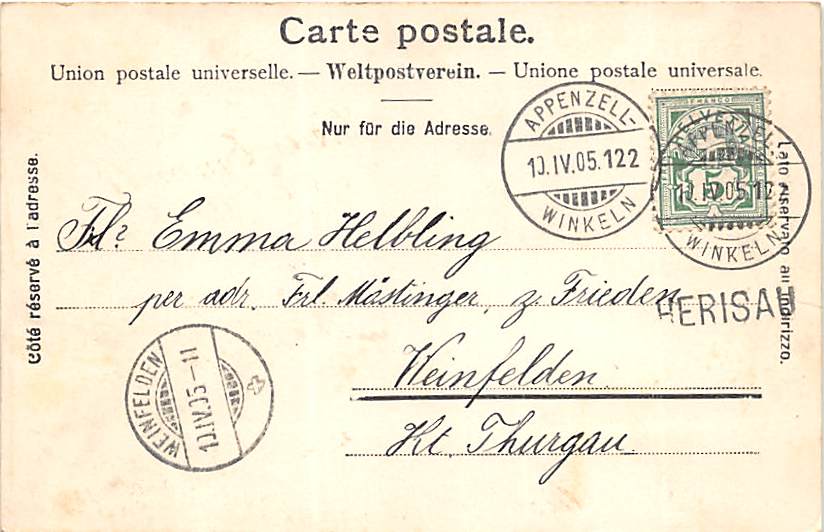 Carte postale.
Union postale universelle. — Weltpostverein. — Unione postale universale.
Nur für die Adresse.
Côté réservé à l'adresse.
Lato riservato all' indirizzo.
APPENZELL-
10.IV.05.122
WINKELN
FRANCO
HELVETIA
APPENZELL-
10.IV.05.122
WINKELN
HERISAU
Frl. Emma Helbling
per adr. Frl. Mästinger, z. Frieden
Weinfelden.
Kt. Thurgau.
WEINFELDEN
10.IV.05-11